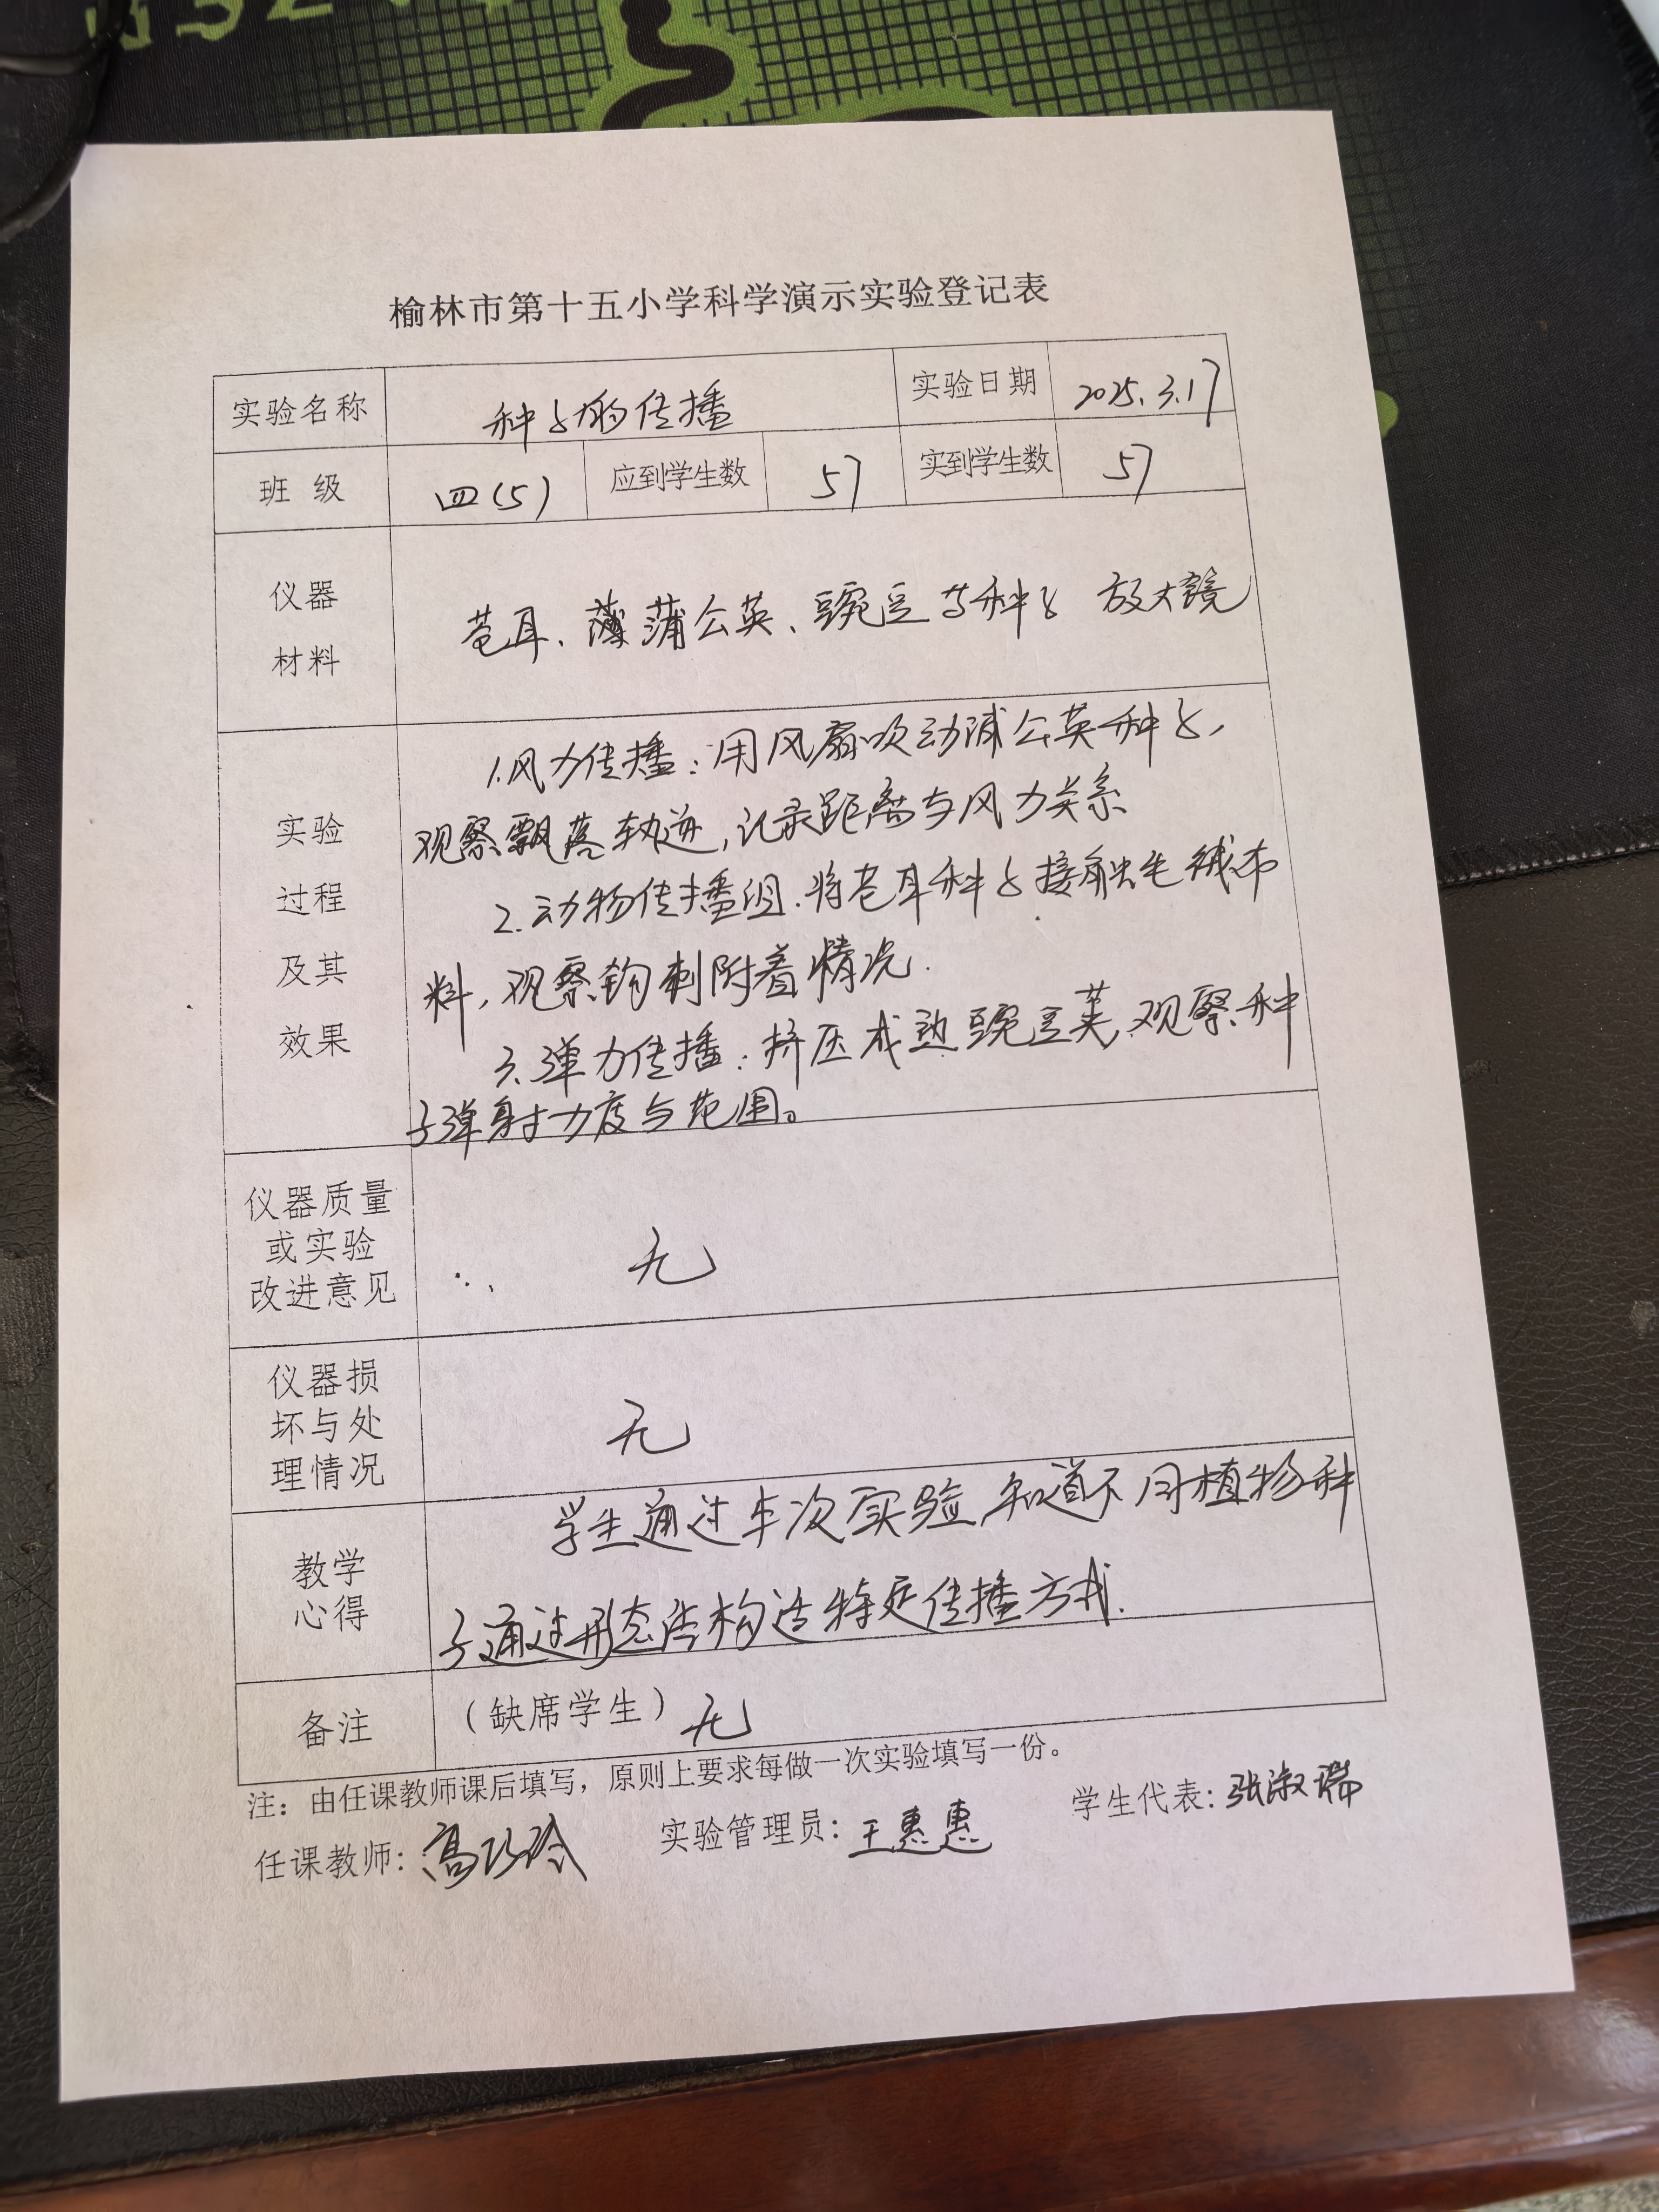 榆林市第十五小学科学演示实验登记表
实验名称 种子的传播 实验日期 2025.3.17
班级 四(5) 应到学生数 57 实到学生数 57
仪器
材料
苍耳、蒲公英、豌豆等种子 放大镜
实验
过程
及其
效果
1.风力传播:用风扇吹动蒲公英种子,
观察飘落轨迹,记录距离与风力关系
2.动物传播组.将苍耳种子接触毛绒布
料,观察钩刺附着情况.
3.弹力传播:挤压成熟豌豆荚,观察种
子弹射力度与范围。
仪器质量
或实验
改进意见
无
仪器损
坏与处
理情况
无
教学
心得
学生通过本次实验,知道不同植物种
子通过形态结构适特定传播方式.
备注 (缺席学生) 无
注:由任课教师课后填写,原则上要求每做一次实验填写一份。
任课教师:高巧玲 实验管理员:王惠惠 学生代表:张淑瑞